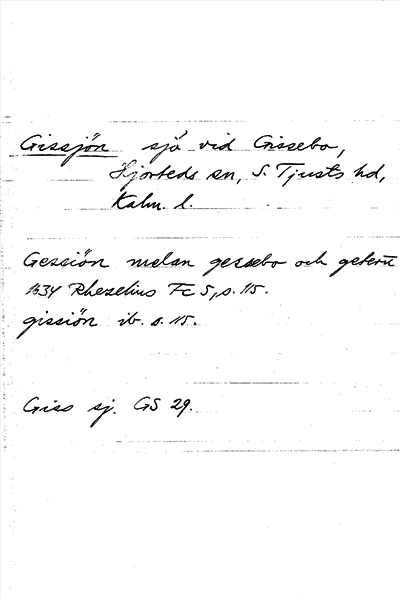 Gissjön sjö vid Gissebo,
Hjorteds sn, S. Tjusts hd,
Kalm. l.
Gessiön melan gessebo och geterü
1634 Rhezelius Fc 5, s. 115.
gissiön ib. s. 115.
Giss sj. GS 29.